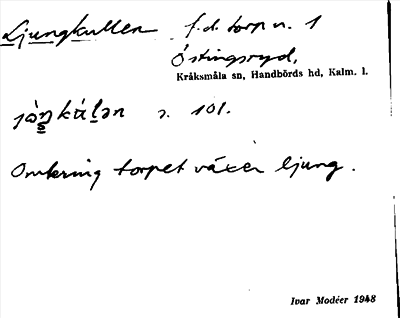 Ljungkullen f.d. torp u. 1
Östingsryd,
Kråksmåla sn, Handbörds hd, Kalm. l.
s. 101.
Omkring torpet växer ljung.
Ivar Modéer 1948